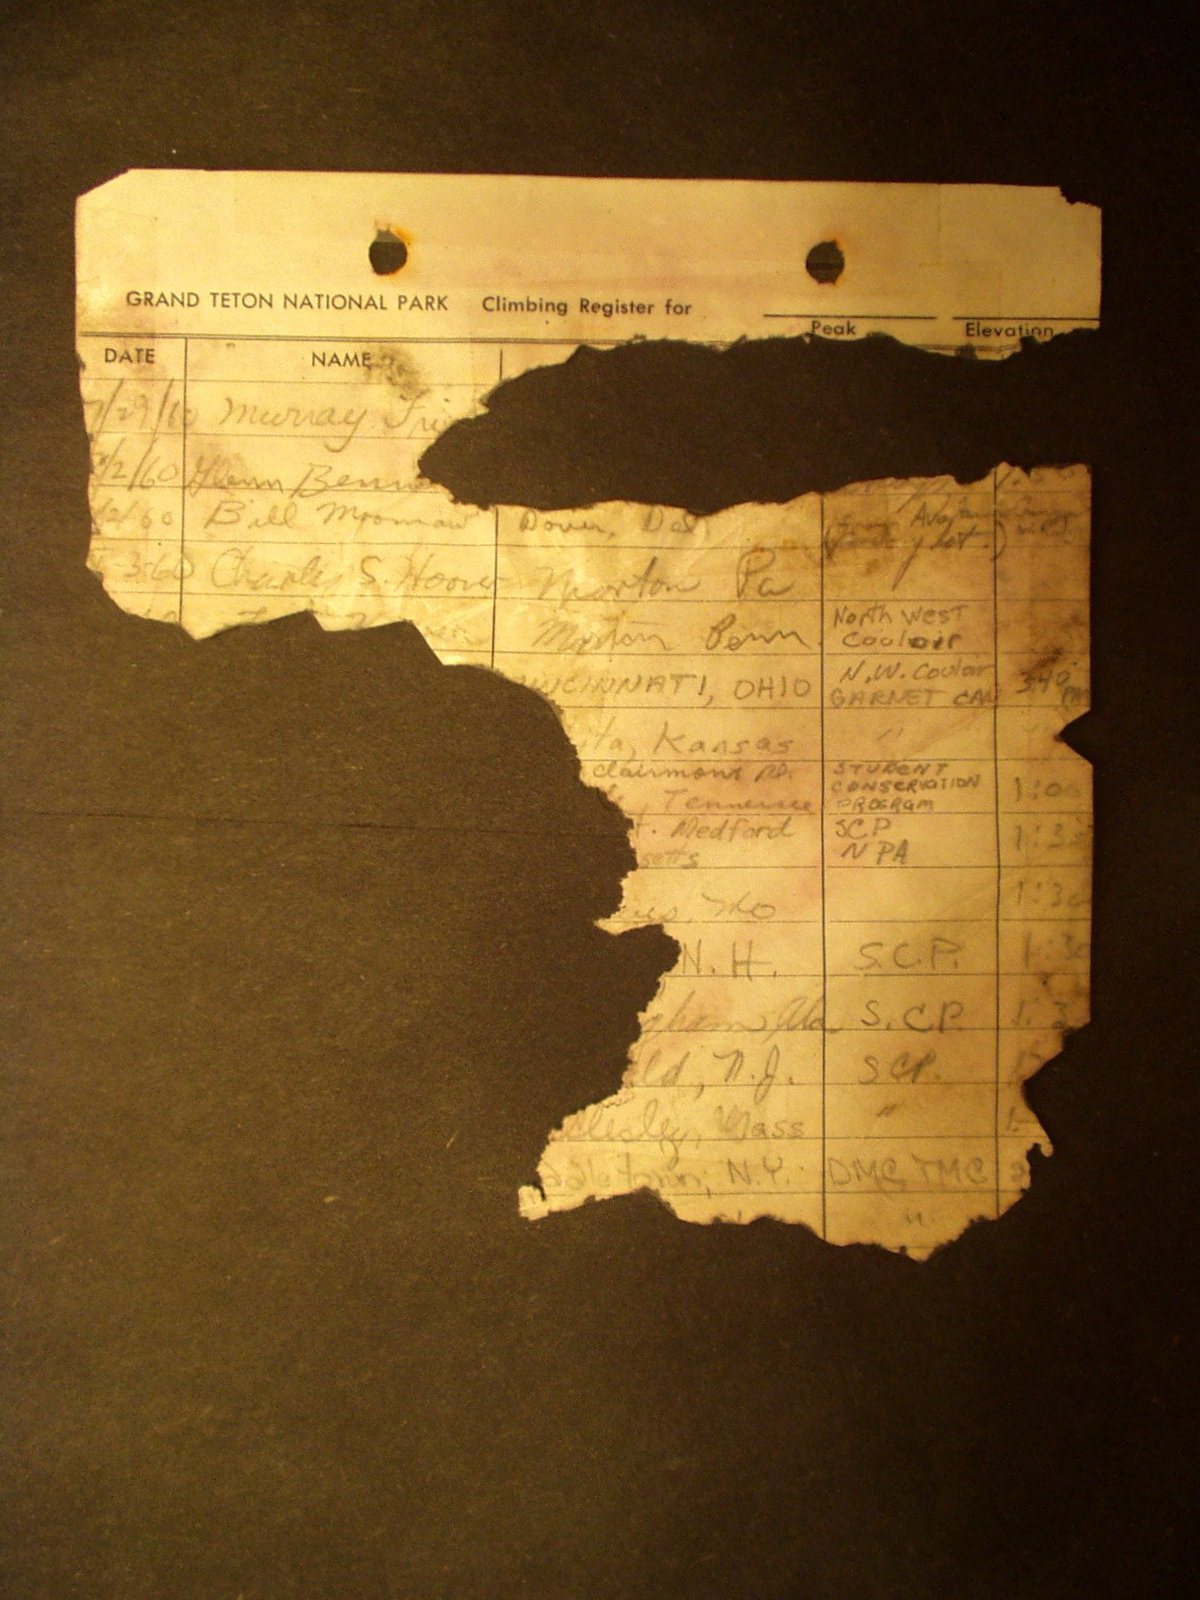 GRAND TETON NATIONAL PARK Climbing Register for
Peak Elevation
DATE NAME
7/29/60 Murray
/2/60 Glenn
/2/60 Bill Dover, Del.
3-60 Charles S. Hoover Morton Pa
Morton Penn North West
Couloir
CINCINNATI, OHIO N.W. Couloir
GARNET CAN 3:40
PM
ita, Kansas "
Clairmont Rd. STUDENT
CONSERVATION
Tennessee PROGRAM 1:00
t. Medford SCP
setts NPA 1:3
Mo 1:30
N.H. S.C.P. 1:30
gham, Ala S.C.P. 1:3
ld, N.J. SCP.
llesley, Mass " 1:
ddletown, N.Y. DMC, TMC
"